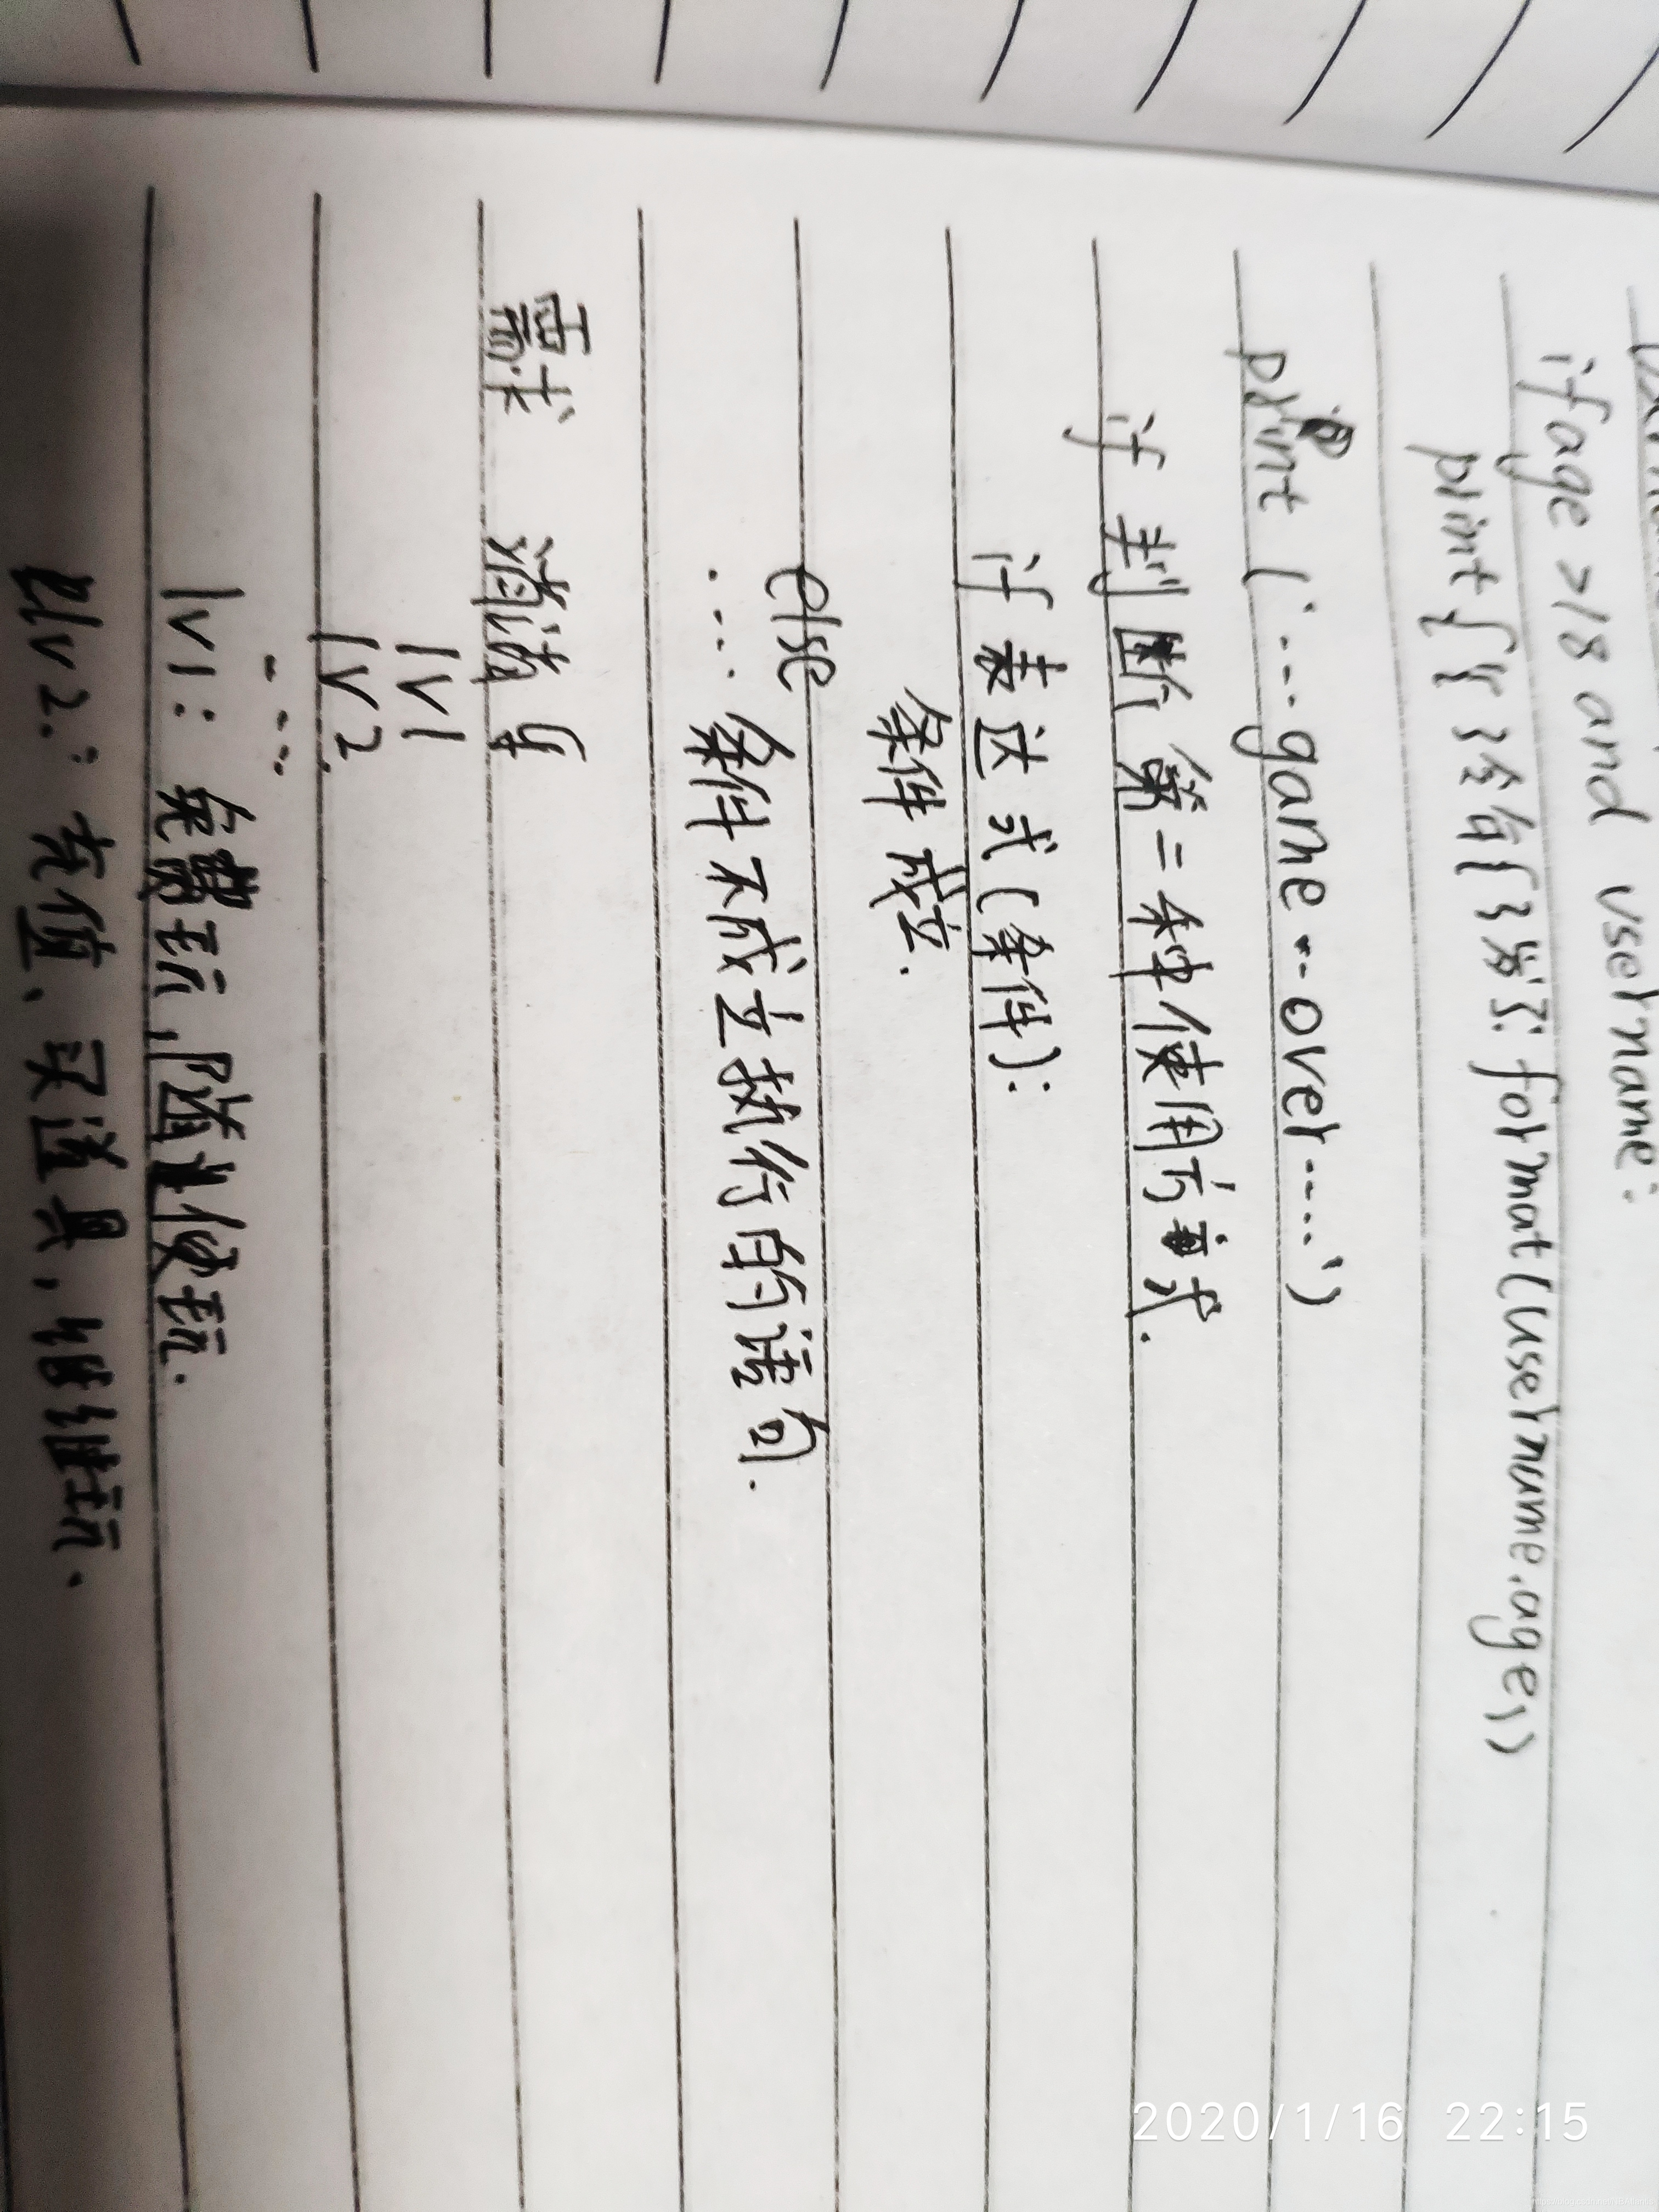 if age >18 and username:
print{'{}今年{}岁了'. format(username.age))
print ('----game---over----')
if 判断 第二种使用方式.
if 表达式(条件):
条件成立.
else
.... 条件不成立执行的语句.
需求 消消乐
lv1
lv2.
- ---
lv1: 免费玩,随便玩.
lv2.: 充值、买道具,继续玩.
2020/1/16 22:15